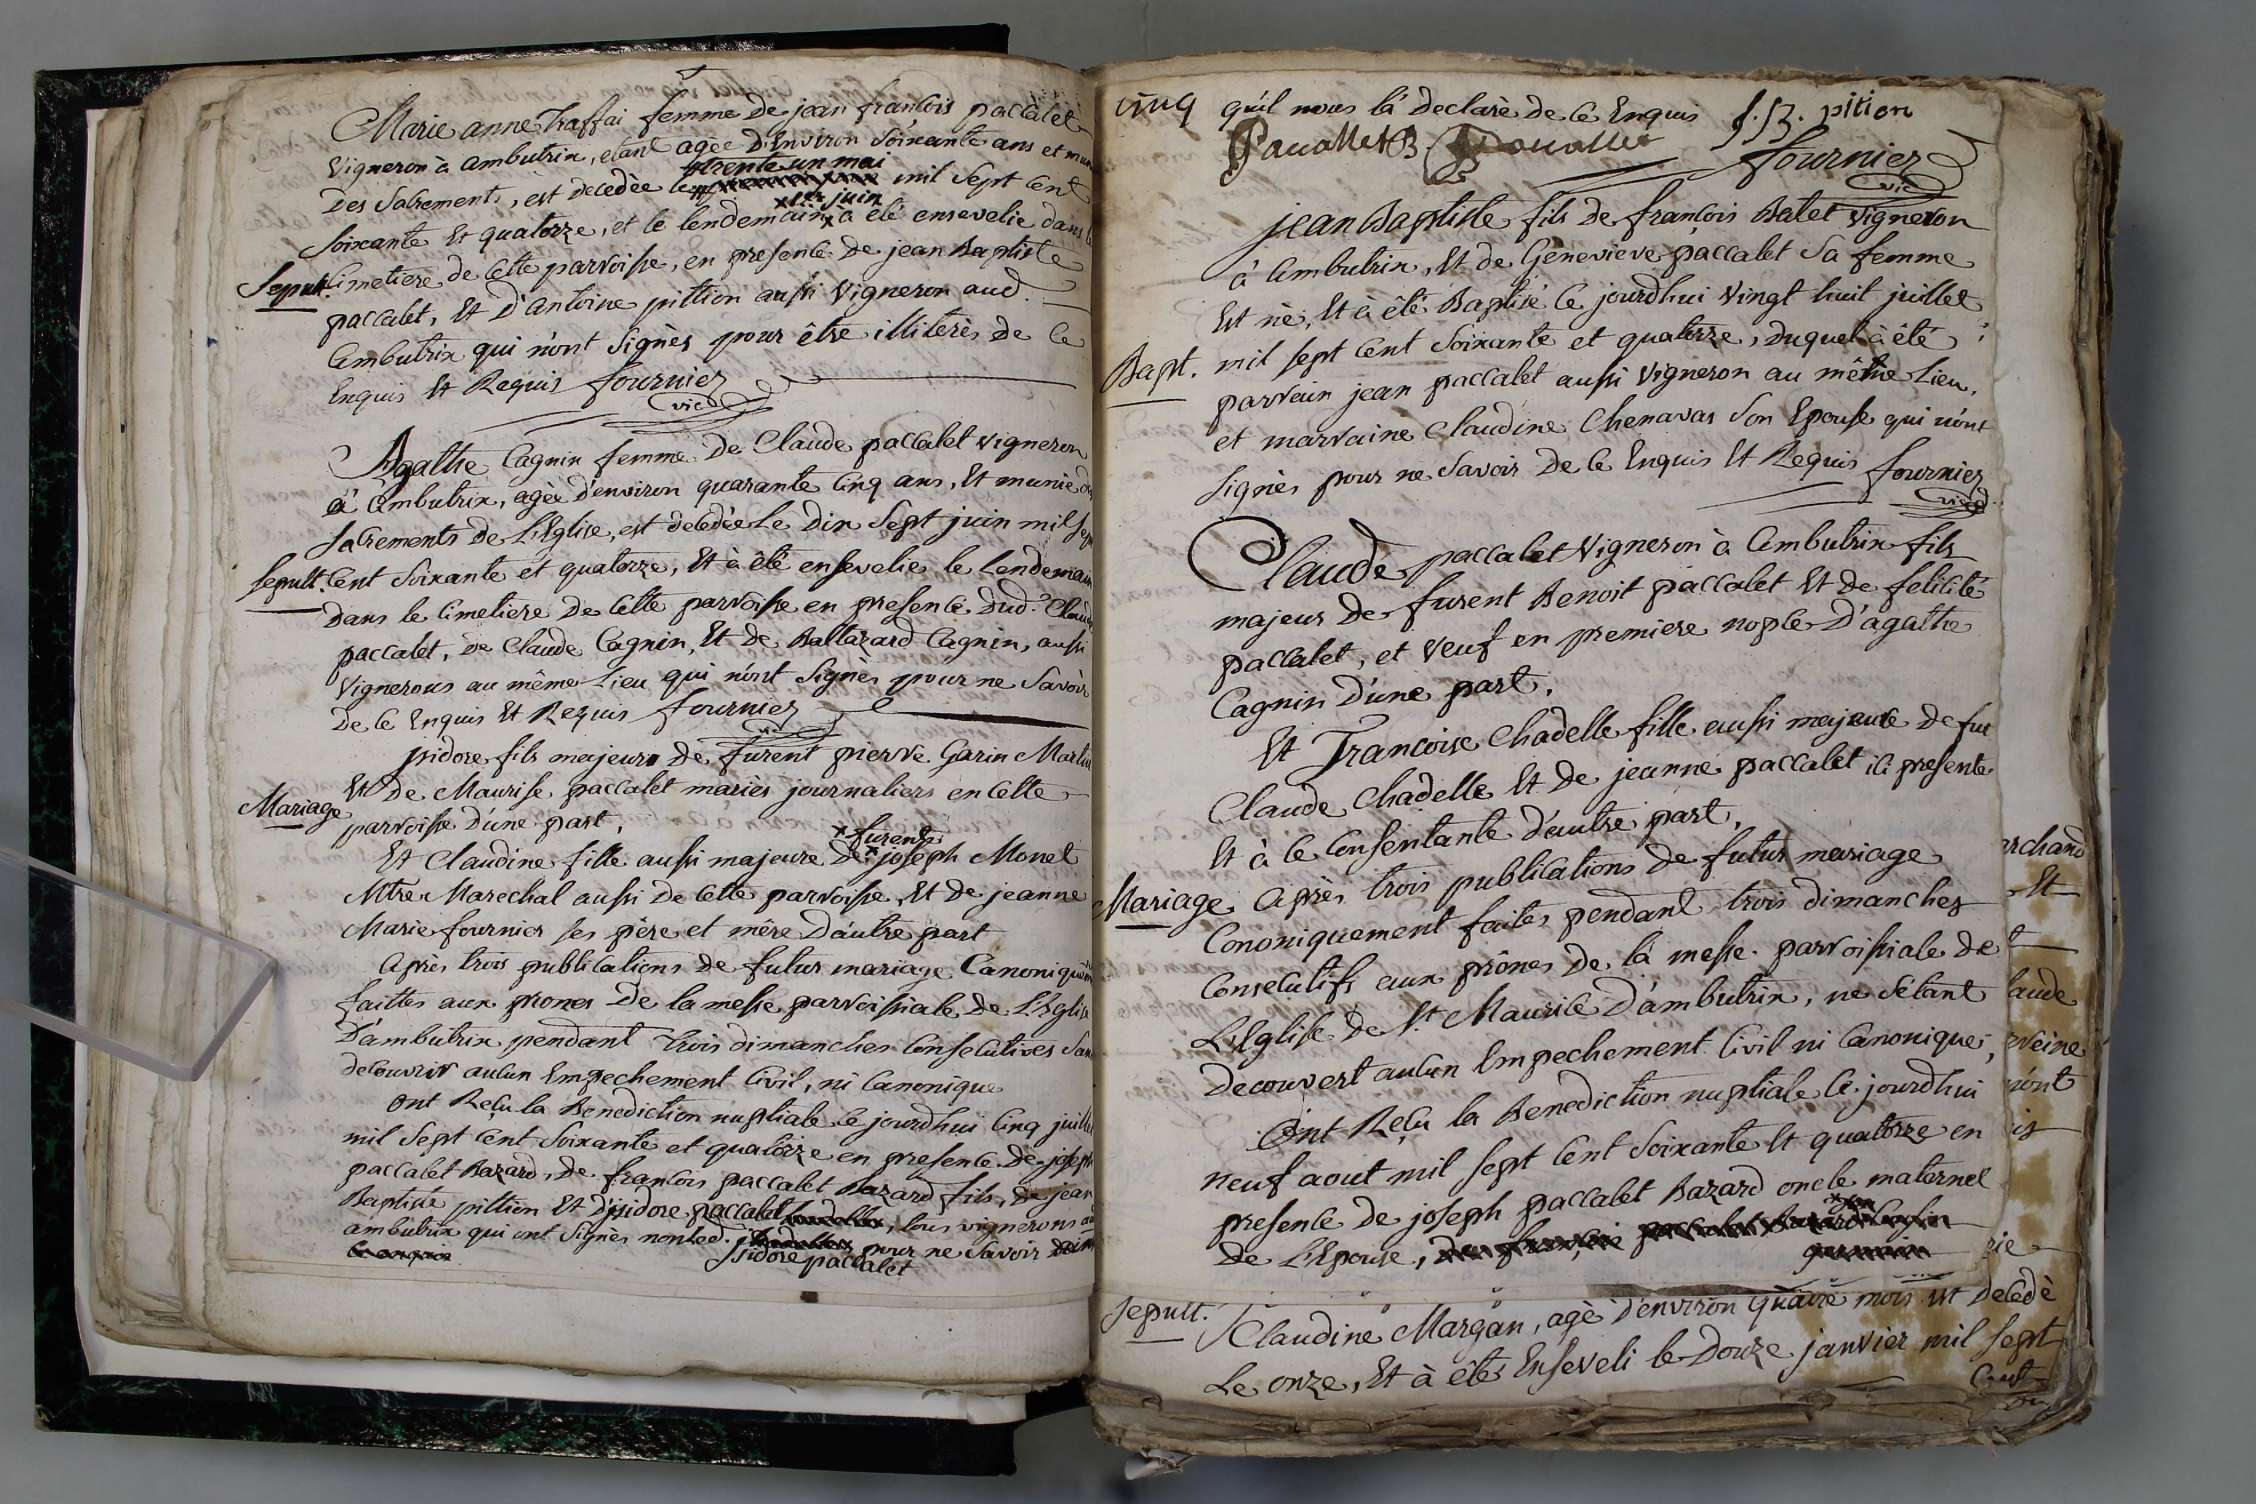 Marie anne Traffai femme de jean francois paccalet
vigneron à ambutrix, etant agèe d'Environ Soixante ans et mun
des Sacrements, est decedèe le trente un mai mil Sept Cent
Soixante Et quatorze, et le lendemain x 1er juin x à été ensevelie dans le
Sepult. Cimetiere de Cette parroisse, en presence de jean Baptiste
paccalet, Et d'Antoine pittion aussi Vigneron aud.
Ambutrix qui n'ont Signès pour être illiterès de Ce
Enquis Et Requis fournier
vic
Agathe Cagnin femme De Claude paccalet Vigneron
à Ambutrix, agèe d'environ quarante Cinq ans, Et munie des
Sacrements de L'Eglise, est decedèe Le Dix Sept juin mil Sept
Sepult. Cent Soixante et quatorze, Et à été ensevelie le Lendemain
Dans le Cimetiere de Cette parroisse en presence dud.t Claude
paccalet, de Claude Cagnin, Et de Baltazard Cagnin, aussi
Vignerons au même Lieu qui n'ont Signès pour ne Savoir
De ce Enquis Et Requis fournier
vic
jsidore fils majeur de furent pierre Garin Martin
Et de Maurise paccalet mariès journaliers en Cette
Mariage parroisse d'une part,
Et Claudine fille aussi majeure de x furent x joseph Monet
Mtre Marechal aussi de Cette parroisse Et de jeanne
Marie fournier ses père et mère d'autre part
Après trois publications de futur mariage Canoniquem
faittes aux prones De la messe parroissiale de L'Eglise
D'ambutrix pendant trois dimanches Consecutives San
decouvrir aucun Empechement Civil, ni Canonique
ont Reçu la Benediction nuptiale le jourdhui Cinq juillet
mil Sept Cent Soixante et quatorze en presence de joseph
paccalet Bazard, de francois paccalet Bazard fils, de jean
Baptiste pittion Et d'jsidore paccalet, tous vignerons au
ambutrix qui ont Signès non led. jsidore paccalet pour ne Savoir
cinq qu'il nous l'à Declarè de Ce Enquis J. B. pition
Pacallet B Pacallet
fournier
vic
jean Baptiste fils de francois Balet vigneron
à Ambutrix, Et de Geneviève paccalet Sa femme
Est nè, Et à été Baptisé Ce jourdhui Vingt huit juillet
Bapt. mil sept Cent Soixante et quatorze, duquel à été
parrein jean paccalet aussi Vigneron au même Lieu,
et marraine Claudine Chenavas Son Epouse qui n'ont
Signès pour ne Savoir De Ce Enquis Et Requis fournier
vic
Claude paccalet Vigneron à Ambutrix fils
majeur de furent Benoit paccalet Et de felicité
paccalet, et Veuf en premiere nopce D'agathe
Cagnin D'une part.
Et Francoise Chadelle fille aussi majeure de fut
Claude Chadelle Et de jeanne paccalet ici presente
Et à Ce Consentante d'autre part.
Mariage Après trois publications de futur mariage
Cononiquement faites pendant trois dimanches
Consecutifs aux prônes De la messe parroissiale de
L'Eglise de St Maurice D'ambutrix, ne s'étant
Decouvert aucun Empechement Civil ni Canonique,
Ont Reçu la Benediction nuptiale Ce jourdhui
neuf aout mil Sept Cent Soixante Et quatorze en
presence de joseph paccalet Bazard oncle maternel
De L'Epouse,
Sepult. Claudine Margan, agè d'environ quatre mois est decèdè
Le onze, Et à étè Enseveli le Douze janvier mil sept
Cent
rchand
Et
laude
reine
n'ont
is
rie